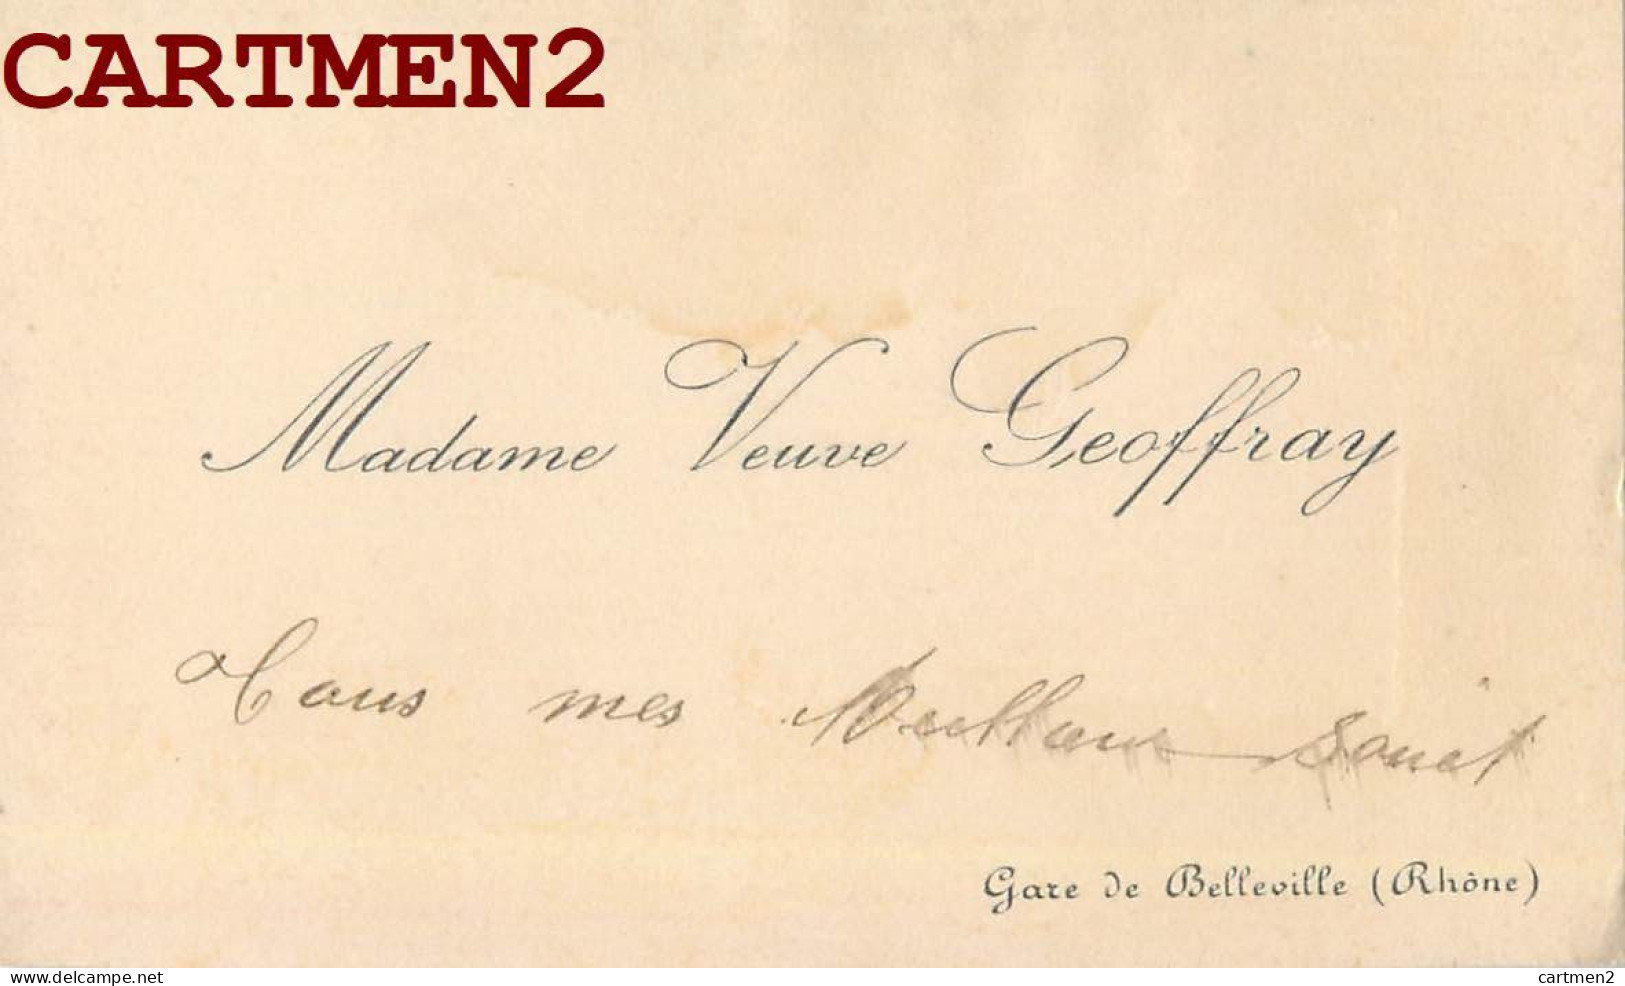 CARTMEN2
Madame Veuve Geoffray
Tous mes
Gare de Belleville (Rhône)
www.delcampe.net
cartmen2